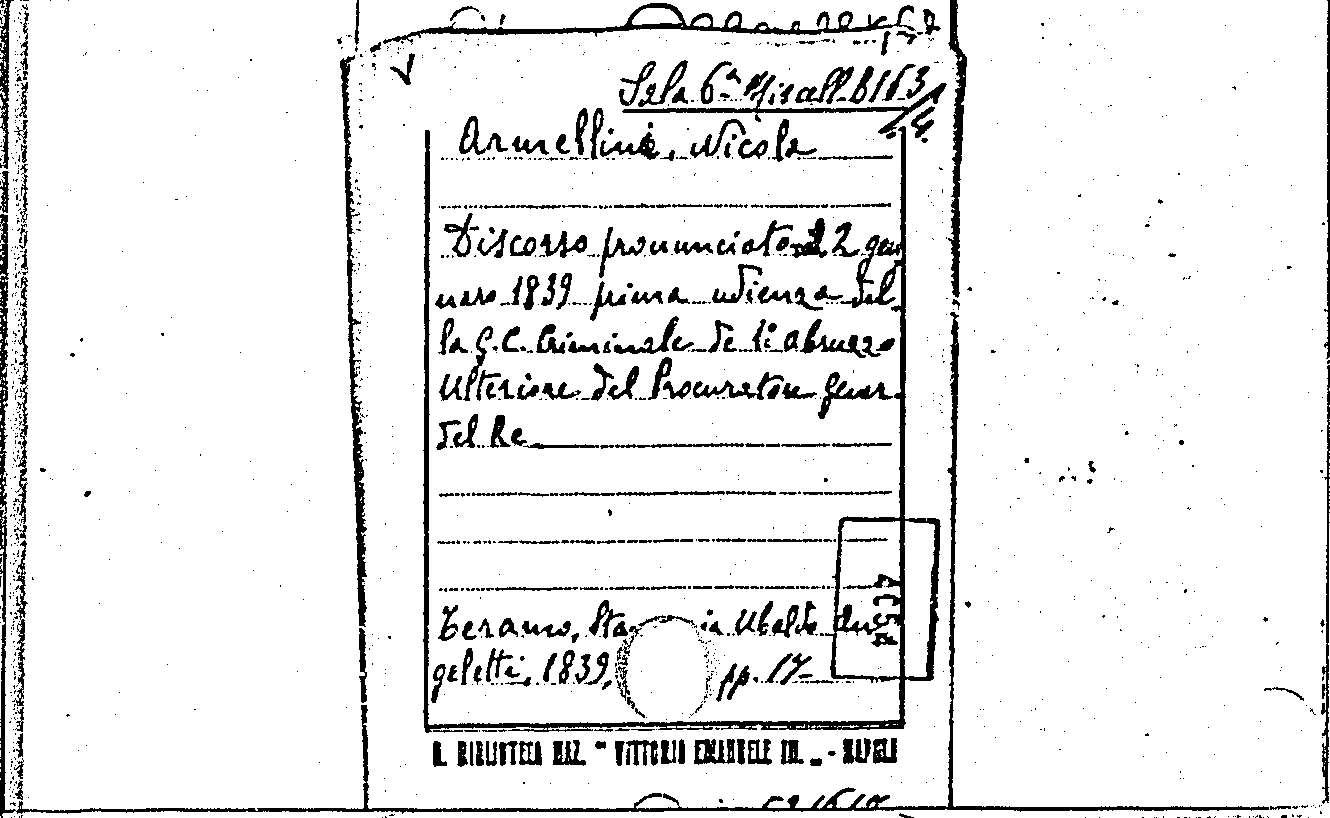 Sala 6ª Miscell. B163
/14
Armellini, Nicola
Discorso pronunciato il 2 gen
naro 1839 prima udienza del
la G. C. Criminale de 1° abruzzo
Ulteriore del Procuratore gener.
del Re
Teramo, Sta ia Ubaldo An
geletti, 1839, pp. 17
R. BIBLIOTECA NAZ. " VITTORIO EMANUELE III. " - NAPOLI